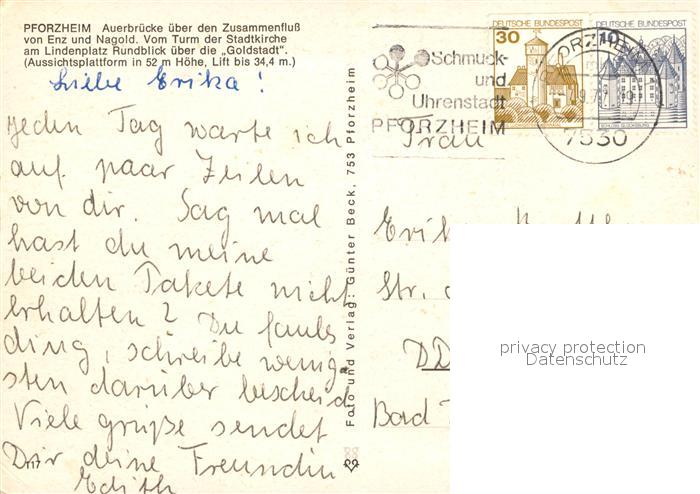 PFORZHEIM Auerbrücke über den Zusammenfluß
von Enz und Nagold. Vom Turm der Stadtkirche
am Lindenplatz Rundblick über die „Goldstadt".
(Aussichtsplattform in 52 m Höhe, Lift bis 34,4 m.)
Liebe Erika!
jeden Tag warte ich
auf paar Zeilen
von dir. Sag mal
hast du meine
beiden Pakete nicht
erhalten? Du faules
ding, schreibe wenig-
sten darüber bescheid
Viele grüße sendet
Dir deine Freundin
Edith
Foto und Verlag: Günter Beck, 753 Pforzheim
Schmuck-
und
Uhrenstadt
PFORZHEIM
DEUTSCHE BUNDESPOST
30
DEUTSCHE BUNDESPOST
10
PFORZHEIM
7530
Frau
Erika
Str.
DD
Bad
privacy protection
Datenschutz